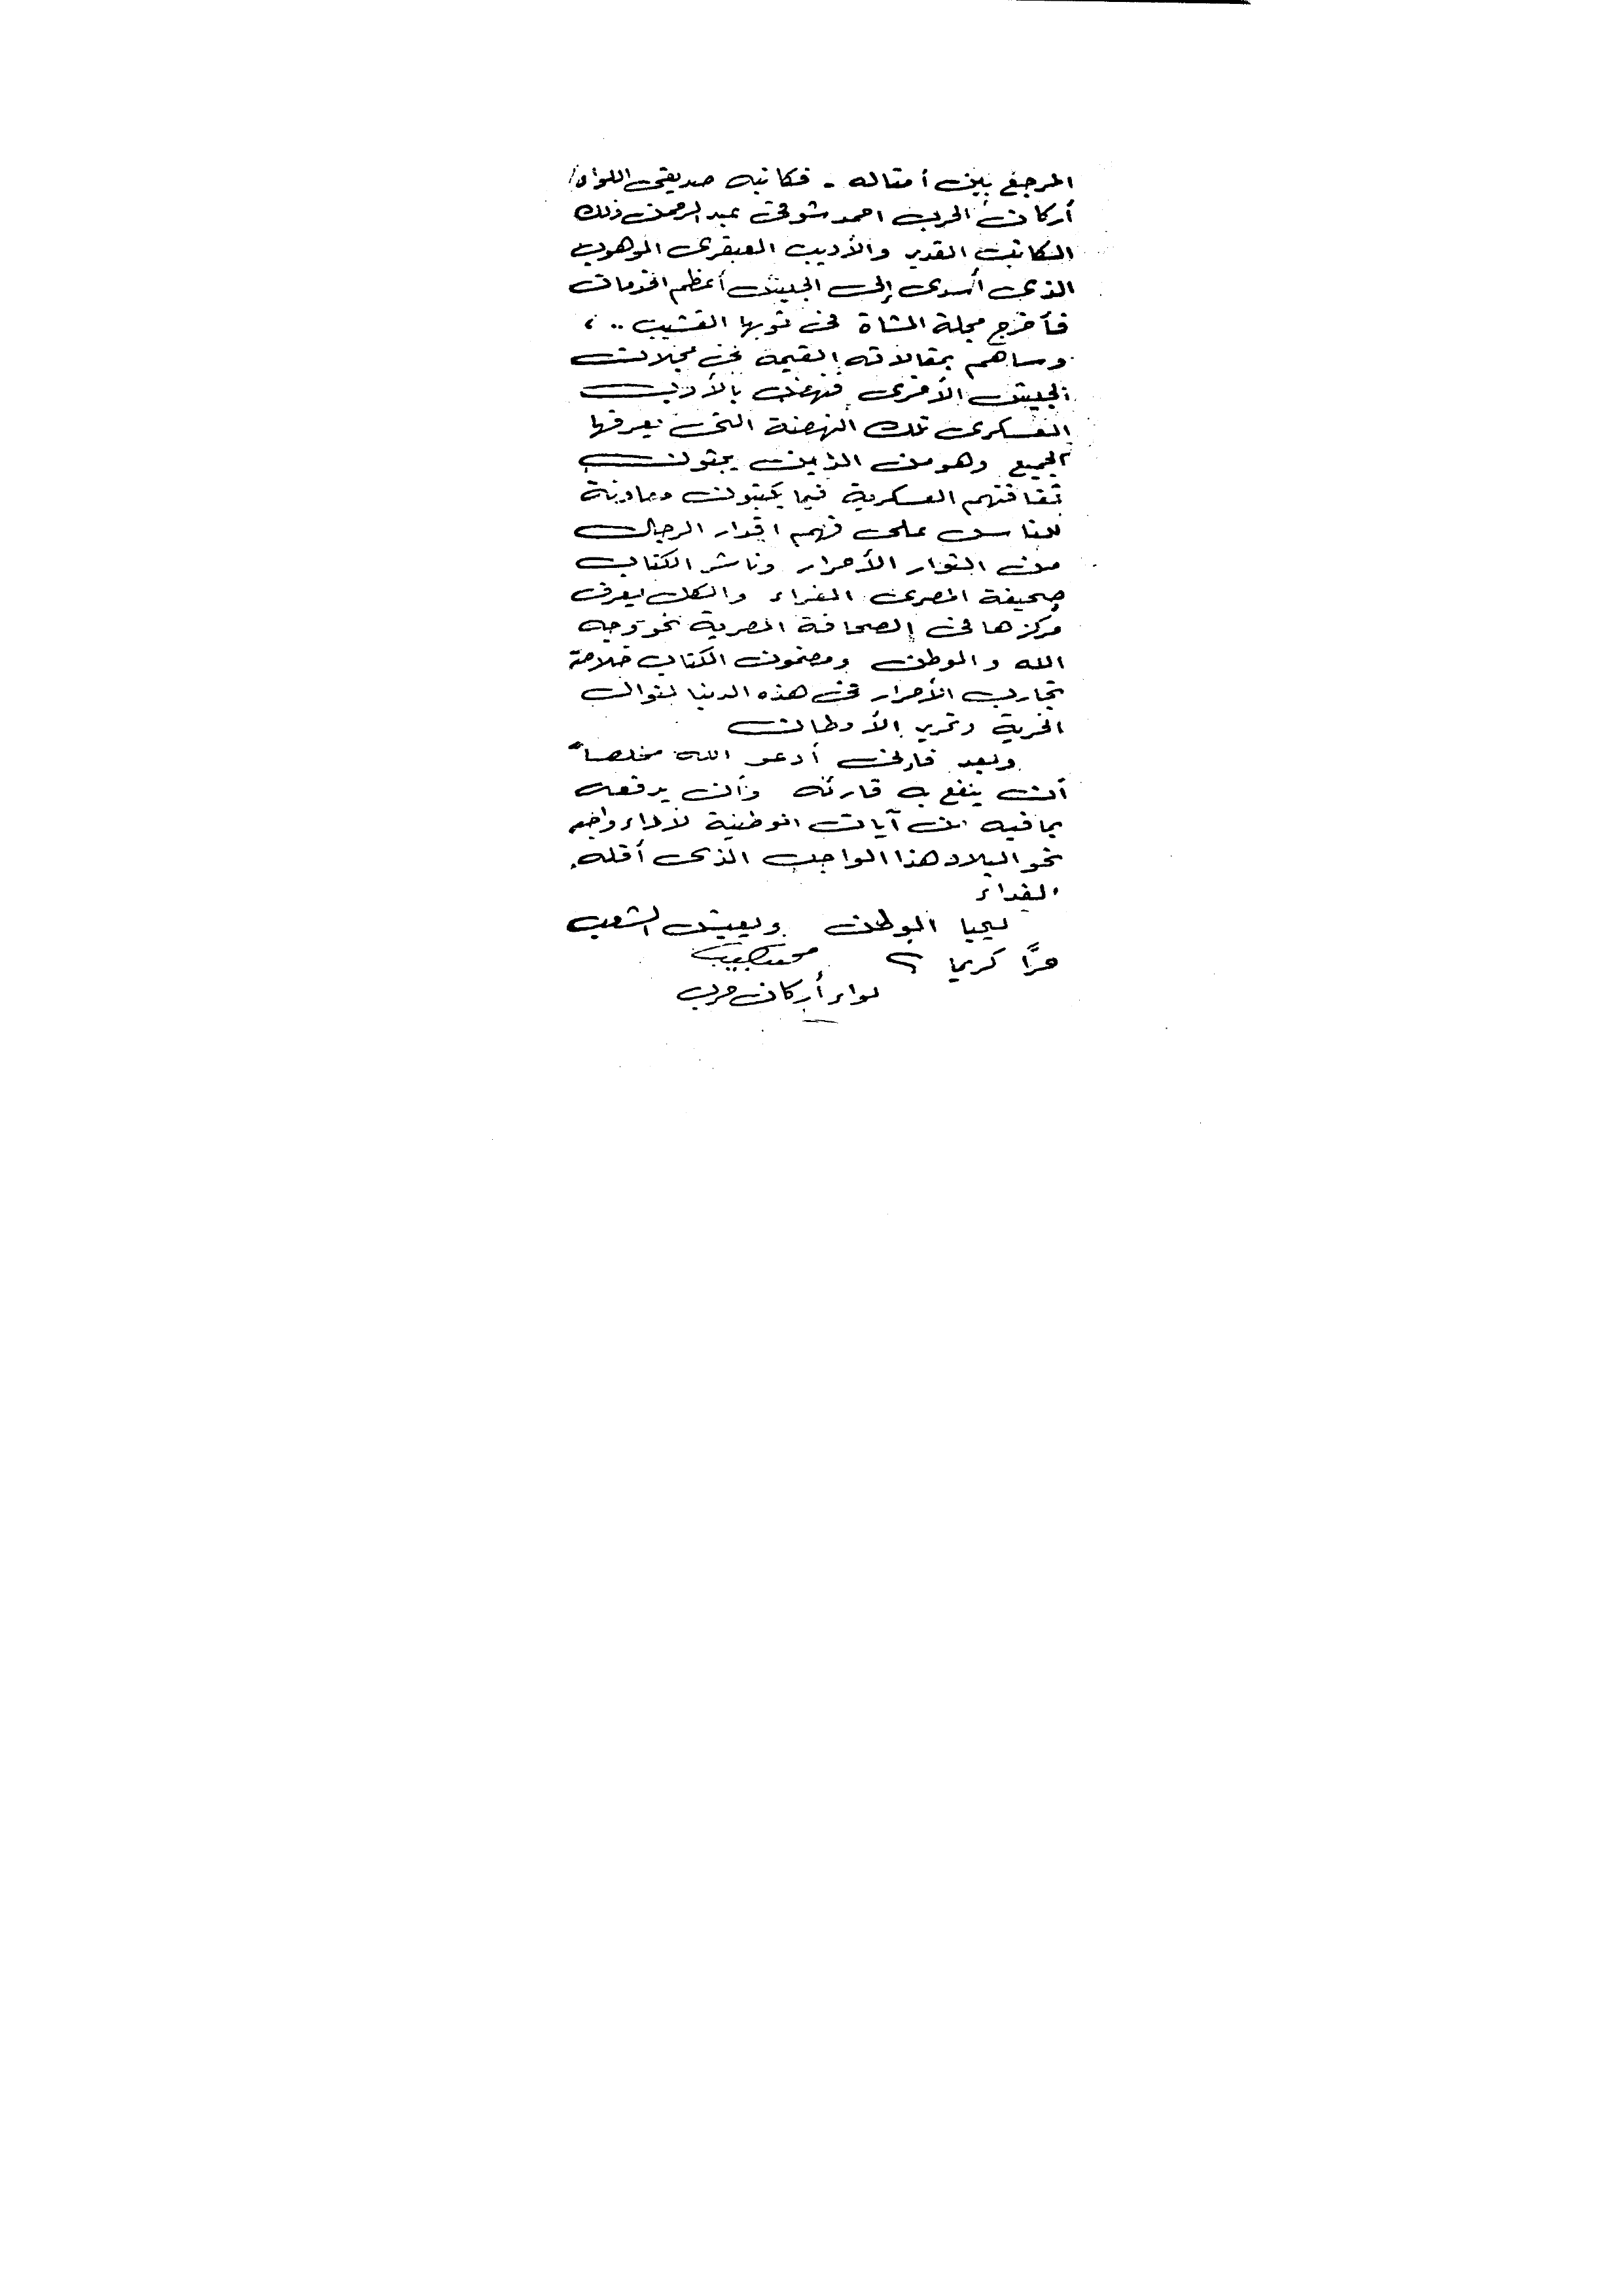 المرجع بين أمثاله - فكاتبه صديقى اللواء/
أركان الحرب احمد شوقى عبد الرحمن ذلك
الكاتب القدير والأديب العبقرى الموهوب
الذى أسدى إلى الجيش أعظم الخدمات
فأخرج مجلة المشاة فى ثوبها القشيب .. ،
وساهم بمقالاته القيمة فى مجلات
الجيش الأخرى فنهض بالأدب
العسكرى تلك النهضة التى يعرفها
الجميع وهو من الذين
ثقافتهم العسكرية فيما يكتبون ومعاونة
للناس على فهم اقدار الرجال
من الثوار الأحرار وناشر الكتاب
صحيفة المصرى الغراء والكل يعرف
مركزها فى الصحافة المصرية نحو وجه
الله والوطن ومضمون الكتاب خلاصة
تجارب الأحرار فى هذه الدنيا لنوال
الحرية وتحرير الأوطان
وبعد فإنى أدعو الله مخلصاً
أن ينفع به قارئه وأن يدفعه
بما فيه من آيات الوطنية لأداء واجبه
نحو البلاد هذا الواجب الذى أقله
الفداء
ليحيا الوطن ويعيش الشعب
حرًّا كريما محمد نجيب
لواء أركان حرب